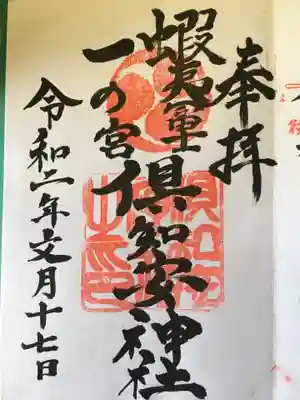 奉拝
蝦夷
一の宮
倶知安神社
令和二年文月十七日